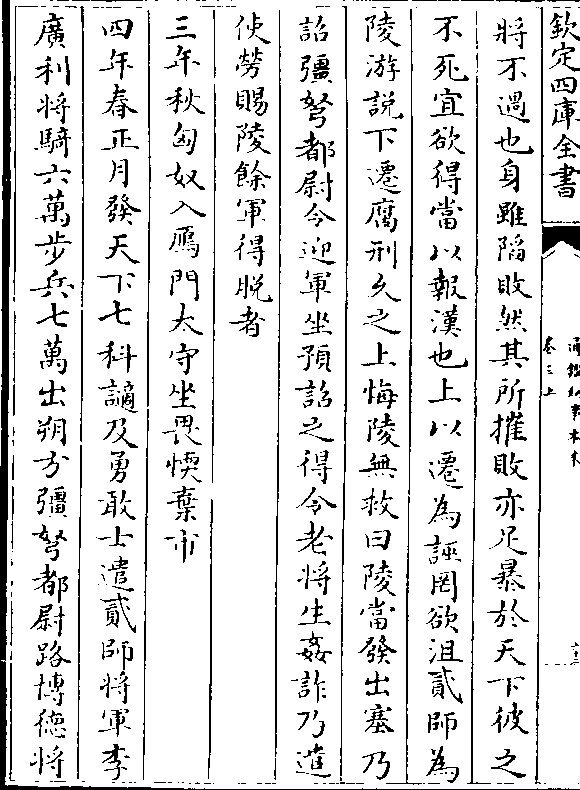 欽定四庫全書
通鑑紀事本末
卷三上
將不過也身雖陷敗然其所摧敗亦足暴於天下彼之
不死宜欲得當以報漢也上以遷為誣罔欲沮貳師為
陵游說下遷腐刑久之上悔陵無救曰陵當發出塞乃
詔彊弩都尉令迎軍坐預詔之得令老將生姦詐乃遣
使勞賜陵餘軍得脫者
三年秋匈奴入鴈門太守坐畏愞棄市
四年春正月發天下七科謫及勇敢士遣貳師將軍李
廣利將騎六萬步兵七萬出朔方彊弩都尉路博德將